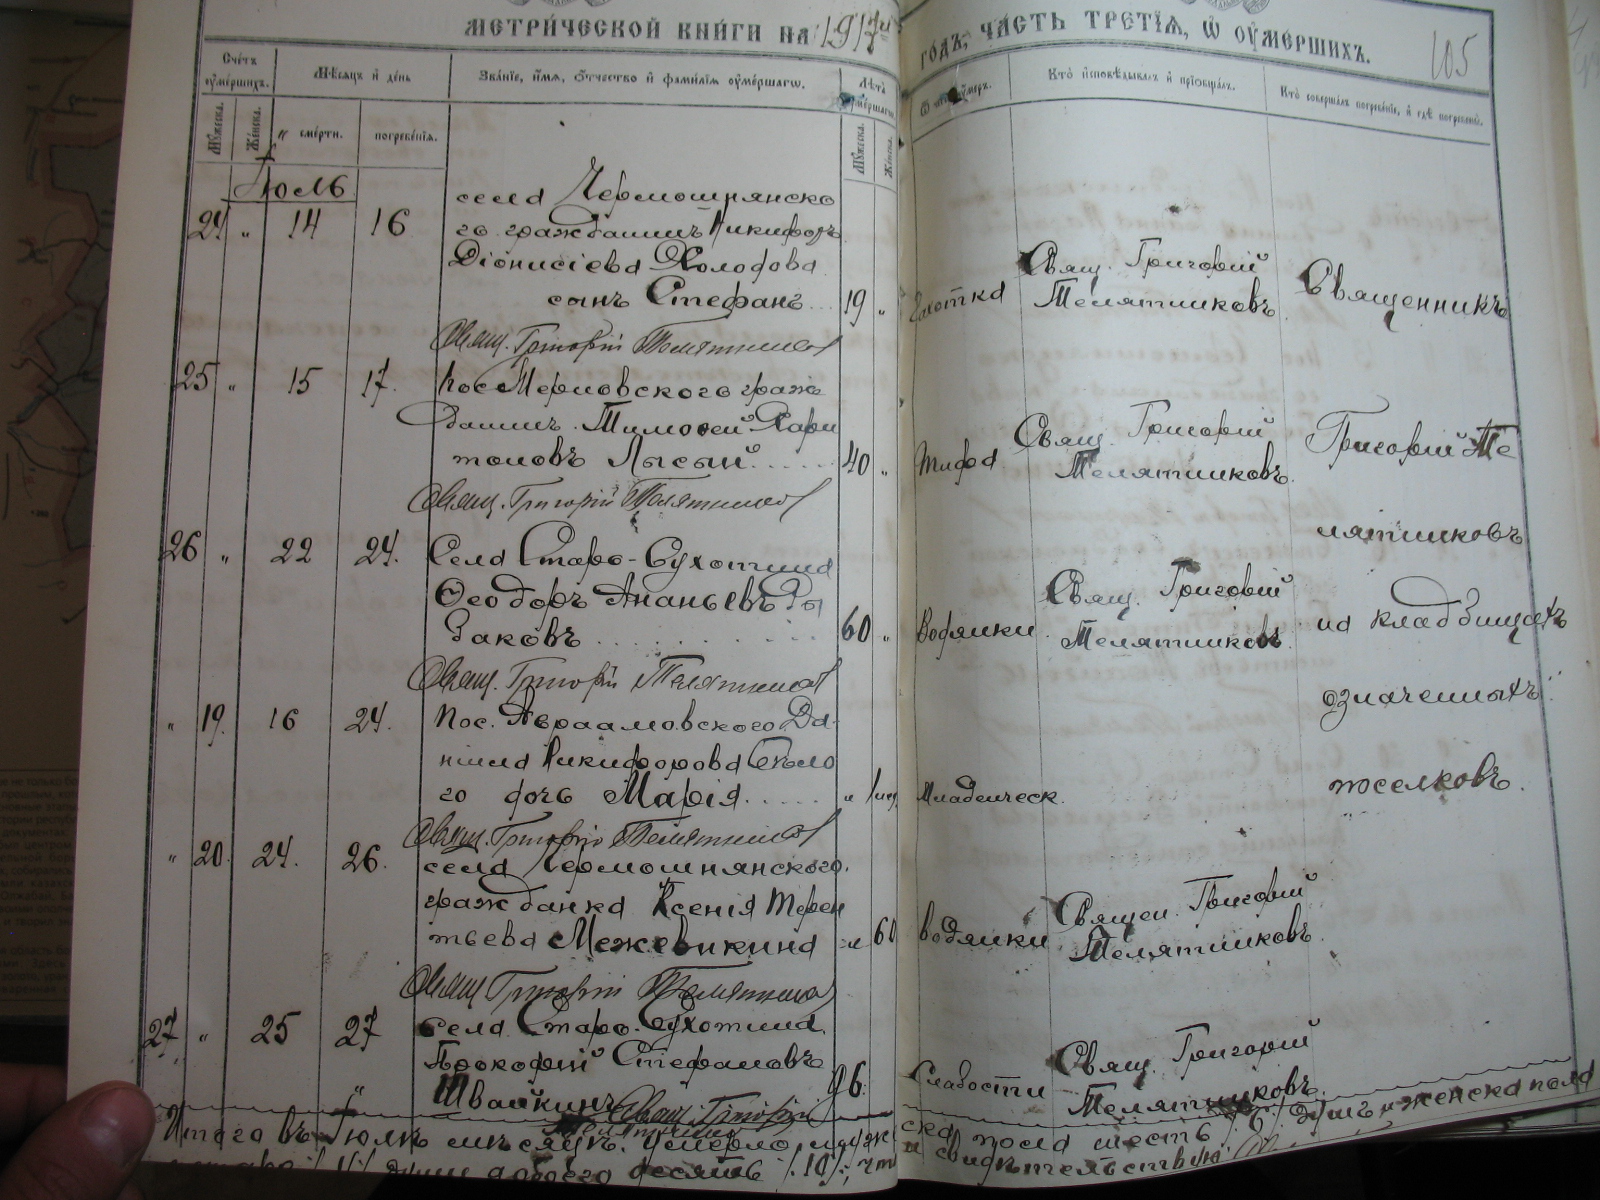 МЕТРИЧЕСКОЙ КНИГИ НА 1917й ГОДЪ, ЧАСТЬ ТРЕТІЯ, Ѿ ОУМЕРШИХЪ.
105
Счетъ оумершихъ.
Мѣсяцъ и день
Званіе, имя, отчество и фамилія оумершагѡ.
Лѣта оумершагѡ.
Кто исповѣдывалъ и пріобщалъ.
Кто совершалъ погребеніе, и гдѣ погребены.
Мужеска.
Женска.
смерти.
погребенія.
Мужеска.
Женска.
Іюль
села Чермошнянско
24 „ 14 16 го гражданинъ Никифоръ
Діонисіева Холодова
сынъ Стефанъ... 19 „ Чахотка
Свящ. Григорій
Телятниковъ
Священникъ
Свящ. Григорій Телятников
25 „ 15 17. пос. Мерловскаго граж
данинъ Тимоѳей Хари
тоновъ Лысый..... 40 „ Тифа
Свящ. Григорій
Телятниковъ.
Григорій Те
Свящ. Григорій Телятников
лятниковъ
26 „ 22 24. Села Старо-Сухотина
Ѳеодоръ Ананьевъ Ры
баковъ 60 „ Водянки
Свящ. Григорій
Телятниковъ.
на кладбищахъ
Свящ. Григорій Телятников
означенныхъ
„ 19. 16 24. Пос. Авраамовскаго Да-
ніила Никифорова
го дочь Марія..... „ Младенческ.
поселковъ.
Свящ. Григорій Телятников
„ 20. 24. 26. села Чермошнянского
гражданка Ксенія Терен
тьева Межевикина „ 60 водянки
Священ. Григорій
Телятниковъ.
Свящ Григорій Телятников
27 „ 25 27 села Старо-Сухотина
Прокофій Стефановъ
Швайкинъ 96. Слабости
Свящ. Григорій
Телятниковъ
Свящ. Григорій
Телятников
Итого въ Іюлѣ мѣсяцѣ умерло муже
ска пола шесть /6/ душъ и женска пола
/4/ души а обоего десять /10/, что
и свидѣтельствую: